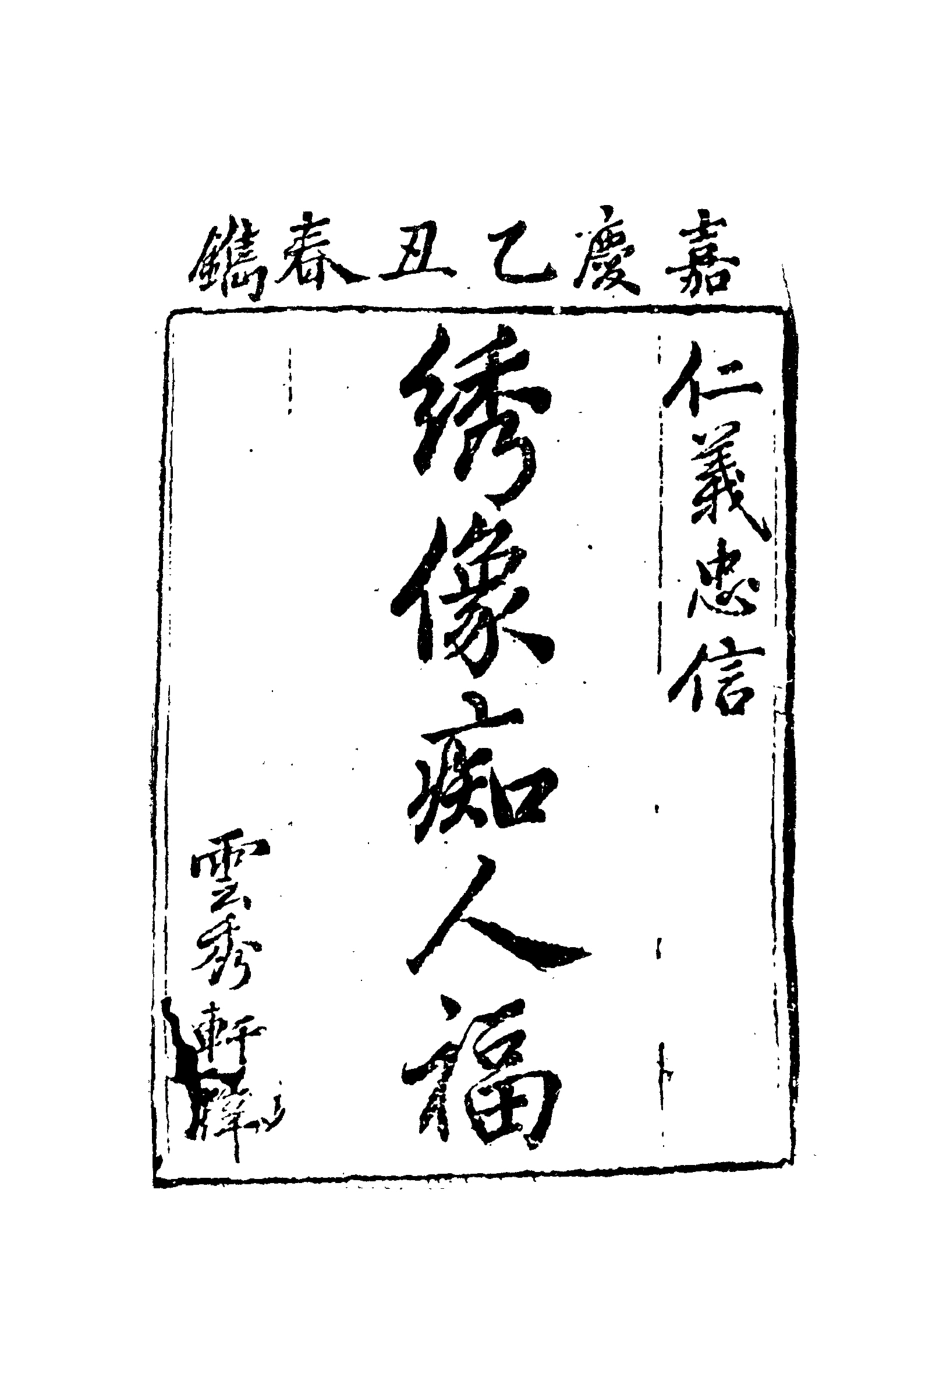 嘉慶乙丑春鐫
仁義忠信
绣像痴人福
雲秀軒梓